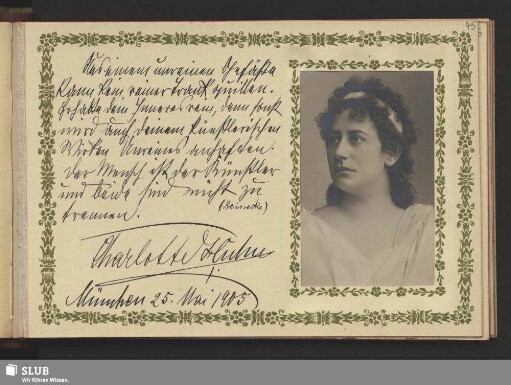 Aus einem unreinen Gefäße
kann kein reiner Trank quillen.
Erhalte dein Inneres rein, denn sonst
wird auch deinem künstlerischen
Wirken Unreines anhaften.
Der Mensch ist der Künstler
und beide sind nicht zu
trennen.
(Reinecke)
Charlotte Huhn
München 25. Mai 1905
45
SLUB
Wir führen Wissen.